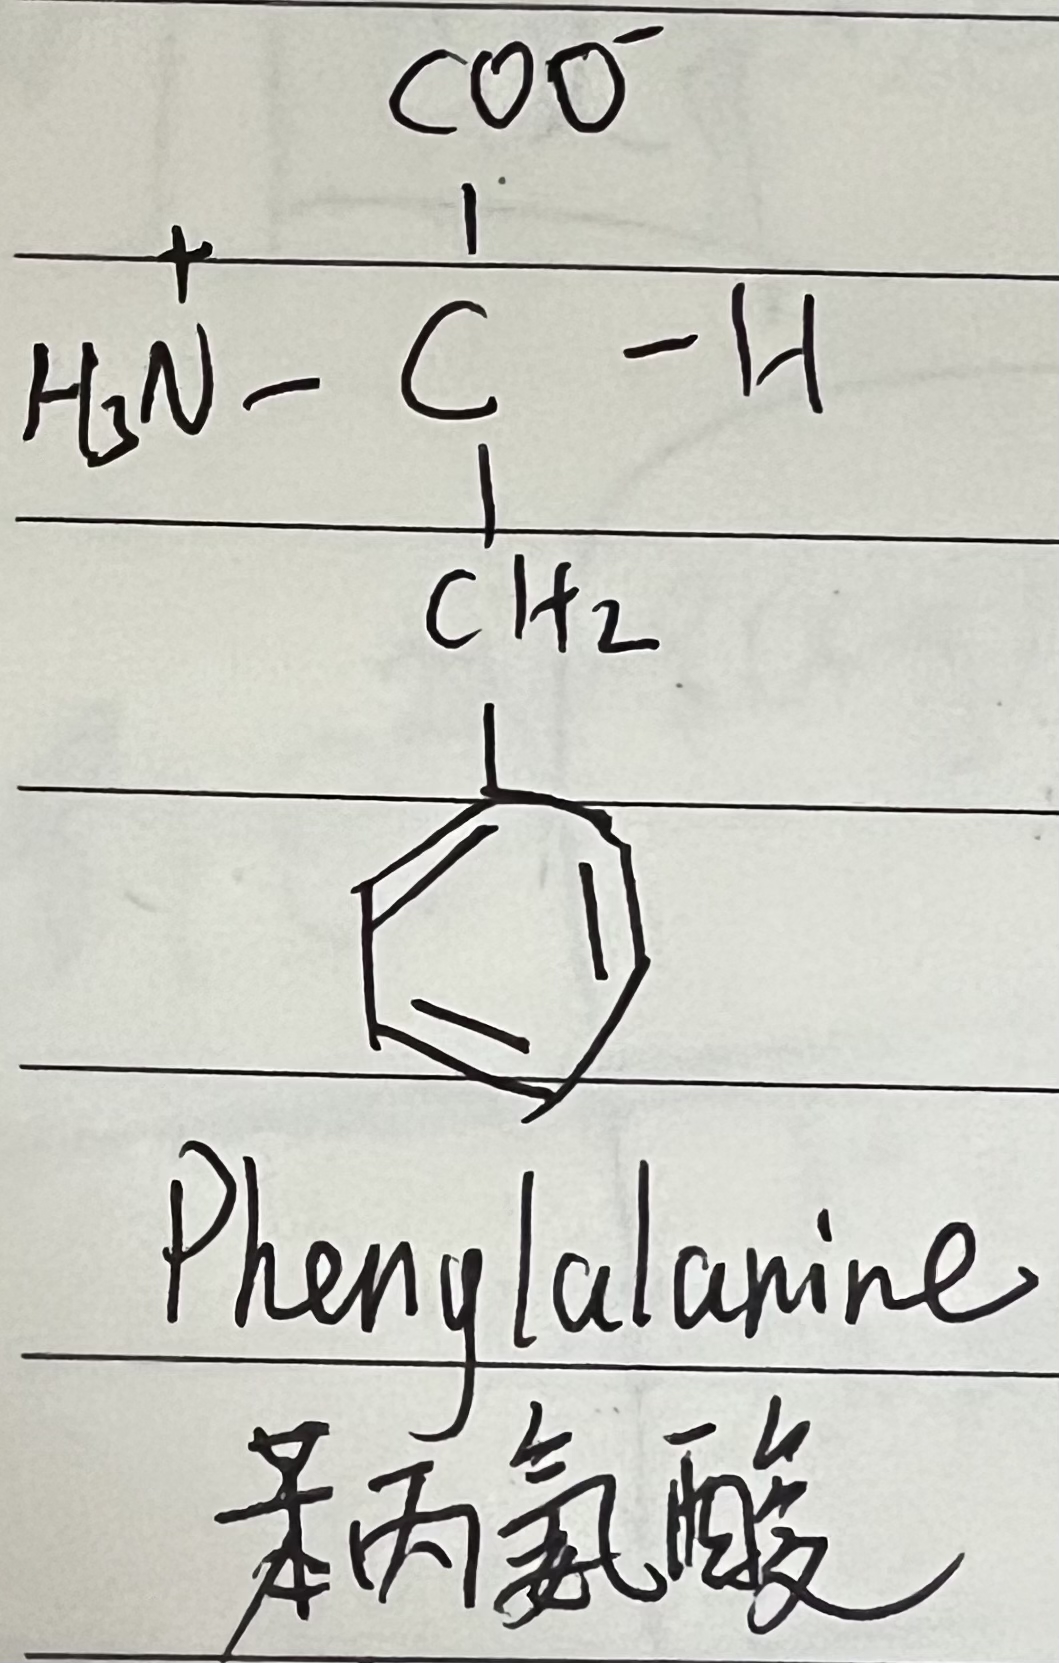 COO⁻
+
H₃N – C – H
CH₂
Phenylalanine
苯丙氨酸